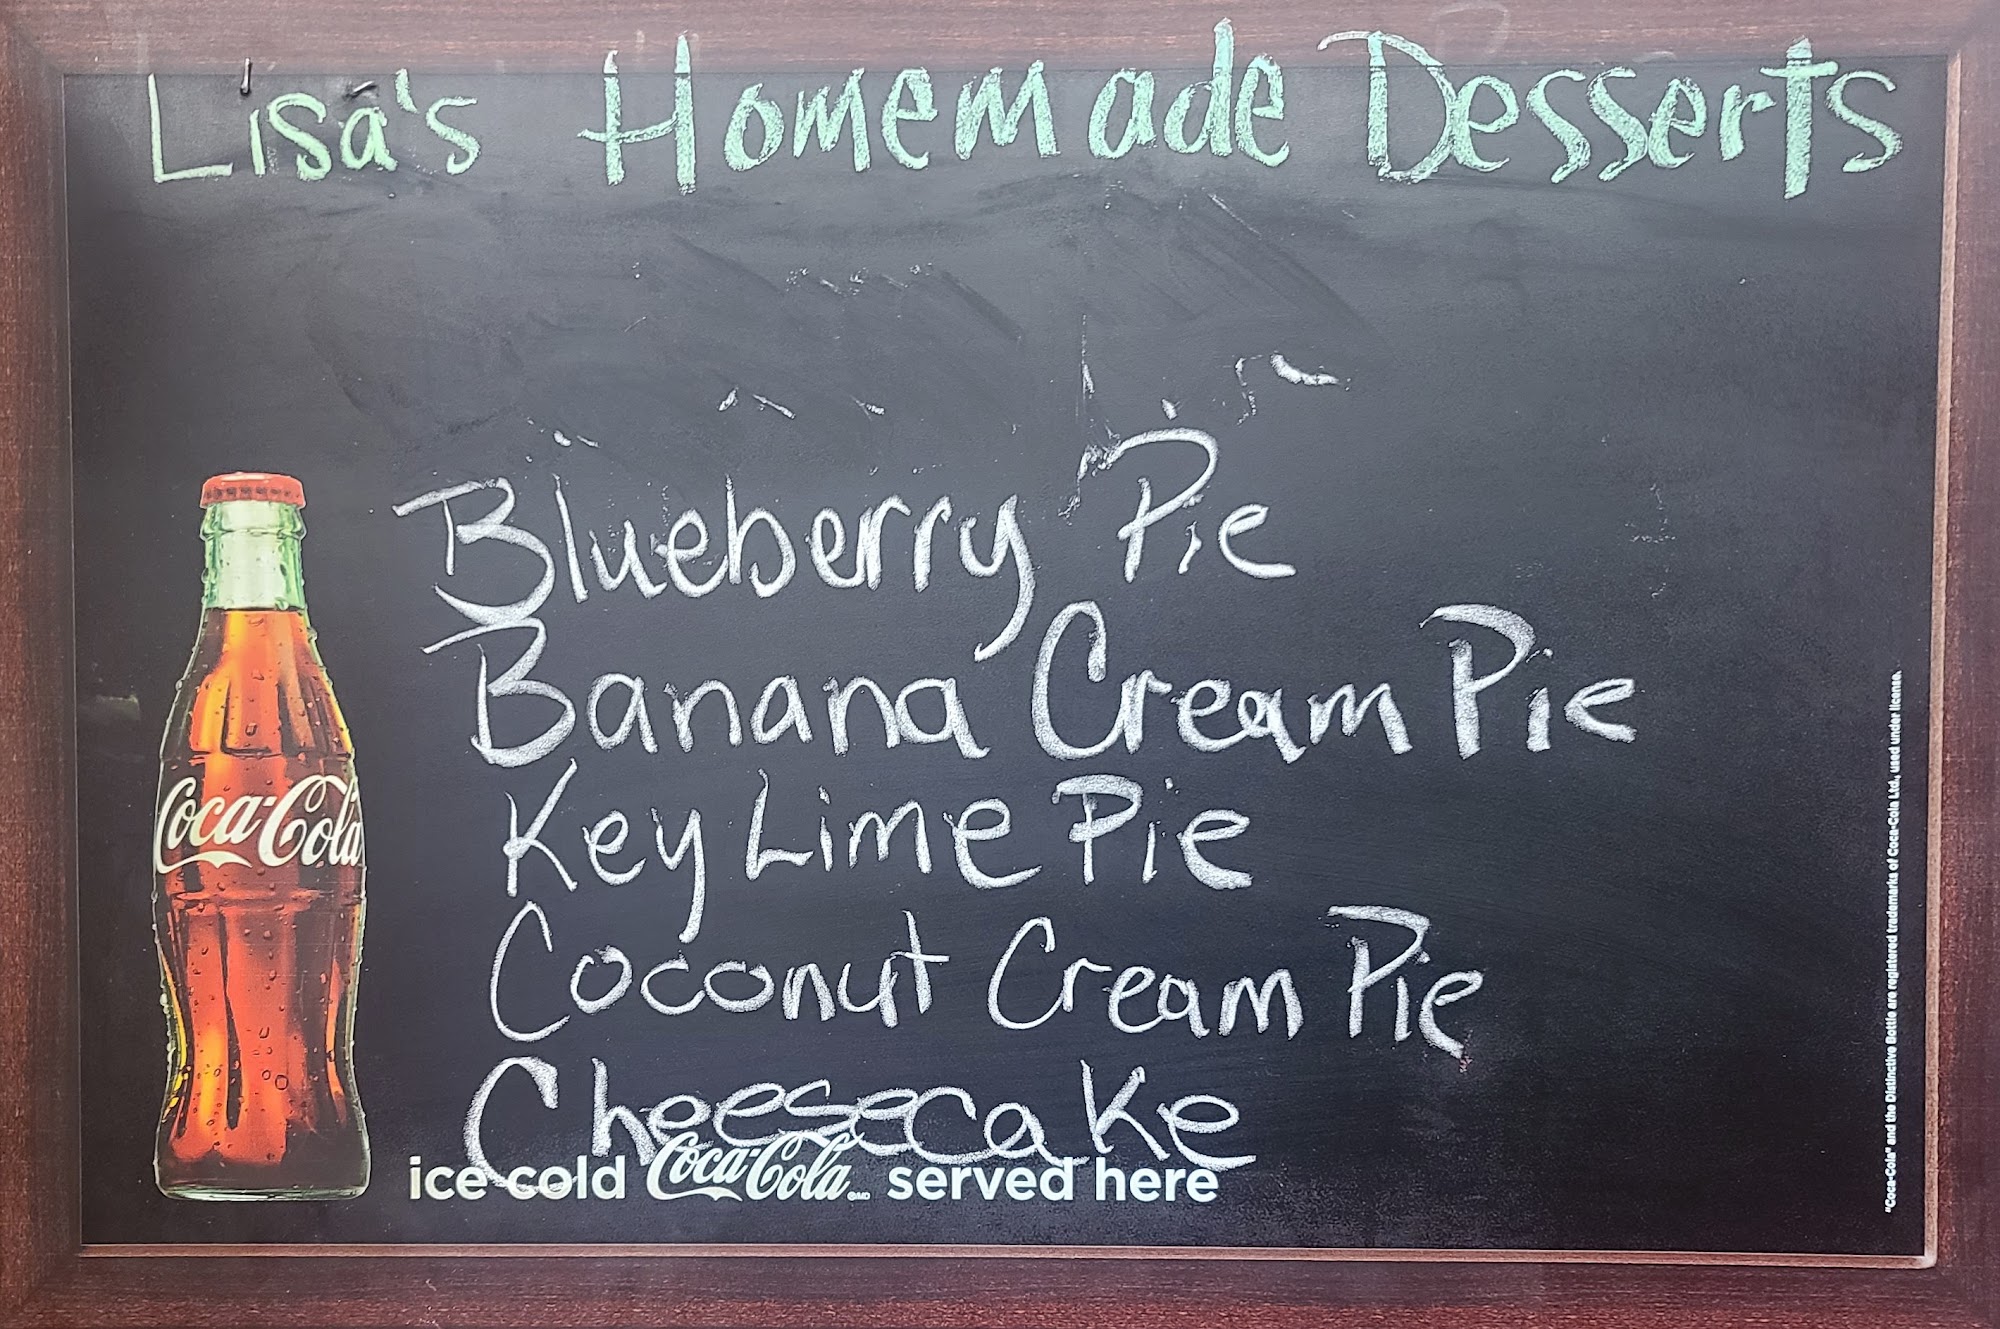 Lisa's Homemade Desserts
Blueberry Pie
Banana Cream Pie
Key Lime Pie
Coconut Cream Pie
Cheesecake
Coca-Cola
ice cold Coca-Cola served here
"Coca-Cola" and the Distinctive Bottle are registered trademarks of Coca-Cola Ltd., used under license.